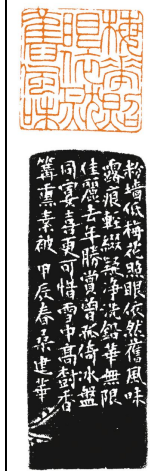 梅花照
眼依然
舊風味
粉墻低梅花照眼依然舊風味
露痕輕綴疑淨洗鉛華無限
佳麗去年勝賞曾孤倚冰盤
同宴喜更可惜雪中高樹香
篝熏素被 甲辰春桑建華